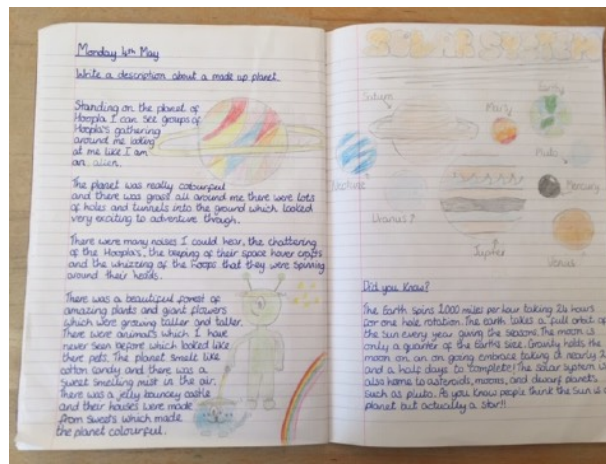 Monday 4th May
Write a description about a made up planet.
Standing on the planet of
Hoopla I can see groups of
Hoopla's gathering
around me looking
at me like I am
an alien.
The planet was really colourful
and there was grass all around me there were lots
of holes and tunnels into the ground which looked
very exciting to adventure through.
There were many noises I could hear, the chattering
of the Hoopla's, the beeping of their space hover crafts
and the whizzeing of the hoops that they were spinning
around their heads.
There was a beautiful forest of
amazing plants and giant flowers
which were growing taller and taller.
There were animals which I have
never seen before which looked like
there pets. The planet smelt like
cotton candy and there was a
sweet smelling mist in the air.
There was a jelly bouncey castle
and their houses were made
from sweets which made
the planet colourful.
SOLAR SYSTEM
Saturn
Mars
Earth
Pluto
Neptune
Mercury
Uranus?
Jupiter
Venus
Did you know?
The Earth spins 1,000 miles per hour taking 24 hours
for one hole rotation. The earth takes a full orbit of
the sun every year giving the seasons. The moon is
only a quarter of the Earths size. Gravity holds the
moon on an on going embrace taking it nearly 2
and a half days to complete! The solar system is
also home to asteroids, moons, and dwarf planets
such as pluto. As you know people think the Sun is a
planet but actually a star!!